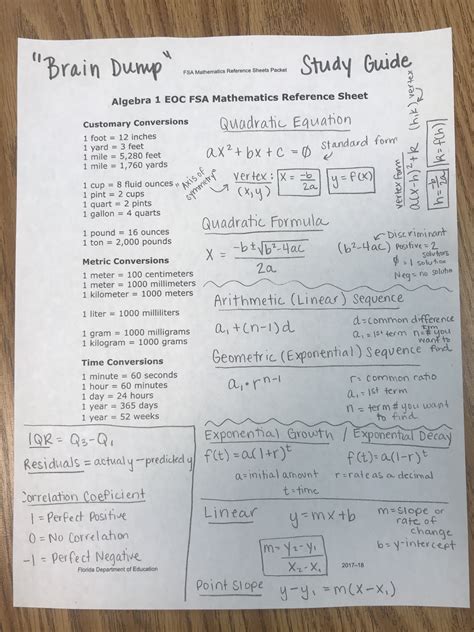 "Brain Dump" FSA Mathematics Reference Sheets Packet Study Guide
Algebra 1 EOC FSA Mathematics Reference Sheet
Customary Conversions
1 foot = 12 inches
1 yard = 3 feet
1 mile = 5,280 feet
1 mile = 1,760 yards
1 cup = 8 fluid ounces
1 pint = 2 cups
1 quart = 2 pints
1 gallon = 4 quarts
1 pound = 16 ounces
1 ton = 2,000 pounds
Metric Conversions
1 meter = 100 centimeters
1 meter = 1000 millimeters
1 kilometer = 1000 meters
1 liter = 1000 milliliters
1 gram = 1000 milligrams
1 kilogram = 1000 grams
Time Conversions
1 minute = 60 seconds
1 hour = 60 minutes
1 day = 24 hours
1 year = 365 days
1 year = 52 weeks
IQR = Q₃-Q₁
Residuals = actual y - predicted y
Correlation Coeficient
1 = Perfect Positive
0 = No Correlation
-1 = Perfect Negative
Florida Department of Education
Quadratic Equation
ax² + bx + c = ∅ standard form
Axis of symmetry
vertex: (x, y) x = -b/2a y = f(x)
vertex form
a(x-h)² + k (h,k) vertex
h = -b/2a k = f(h)
Quadratic Formula
x = -b ± √b²-4ac / 2a
Discriminant
(b²-4ac) Positive = 2 solutions
∅ = 1 solution
Neg = no solution
Arithmetic (Linear) Sequence
a₁ + (n-1)d
d = common difference
a₁ = 1st term n = term # you want to find
Geometric (Exponential) Sequence
a₁ · r^n-1
r = common ratio
a₁ = 1st term
n = term # you want to find
Exponential Growth / Exponential Decay
f(t) = a(1+r)^t f(t) = a(1-r)^t
a = initial amount r = rate as a decimal
t = time
Linear y = mx + b
m = slope or rate of change
b = y-intercept
m = y₂-y₁ / x₂-x₁
2017-18
Point Slope y-y₁ = m(x-x₁)